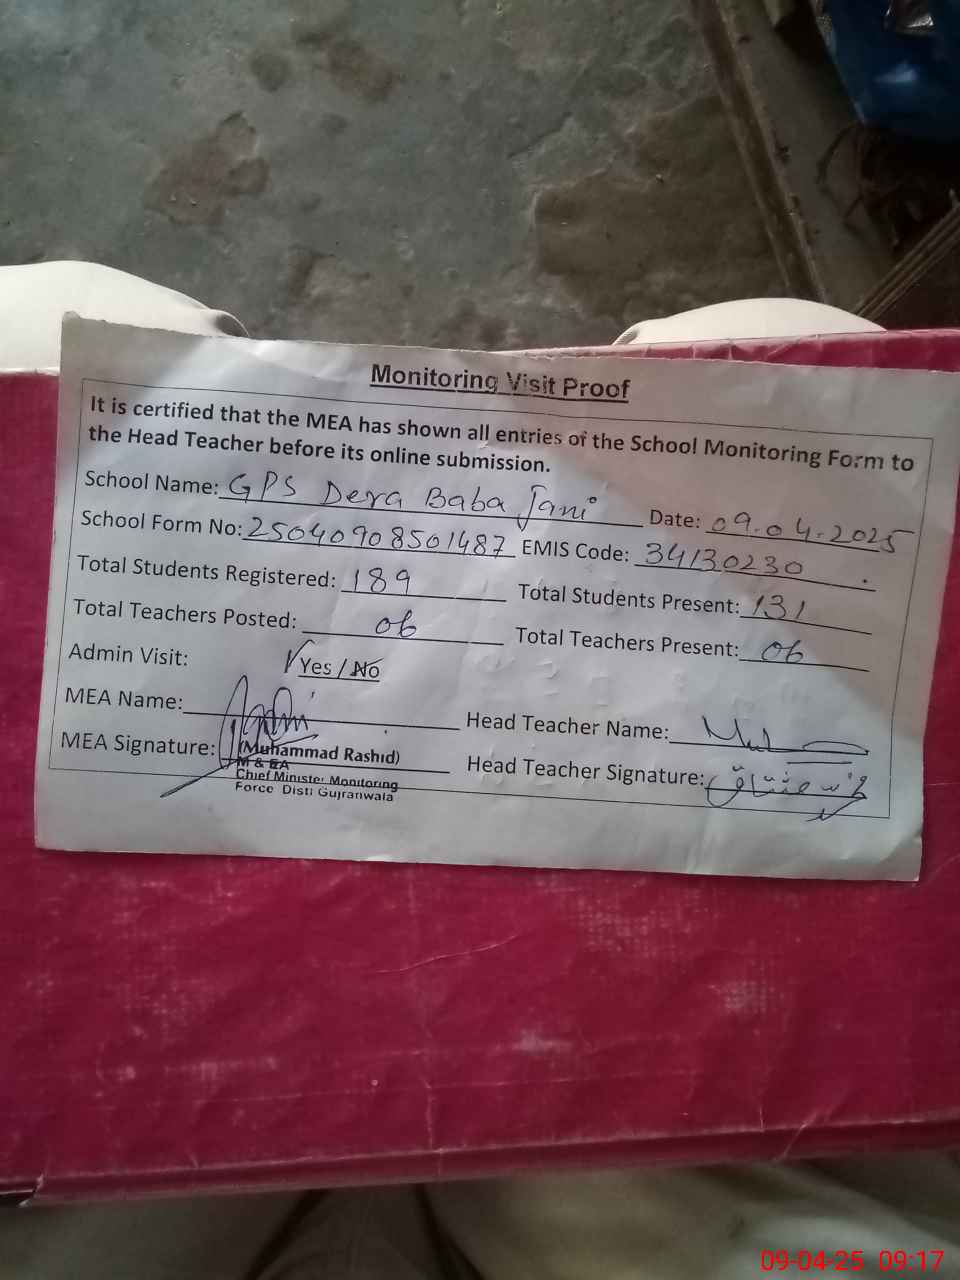 Monitoring Visit Proof
It is certified that the MEA has shown all entries of the School Monitoring Form to
the Head Teacher before its online submission.
School Name: GPS Dera Baba Jani Date: 09.04.2025
School Form No: 25040908501487 EMIS Code: 34130230
Total Students Registered: 189 Total Students Present: 131
Total Teachers Posted: 06 Total Teachers Present: 06
Admin Visit: √ Yes / No
MEA Name: Head Teacher Name:
MEA Signature: (Muhammad Rashid) Head Teacher Signature:
M & EA
Chief Minister Monitoring
Force Distt Gujranwala
09-04-25 09:17